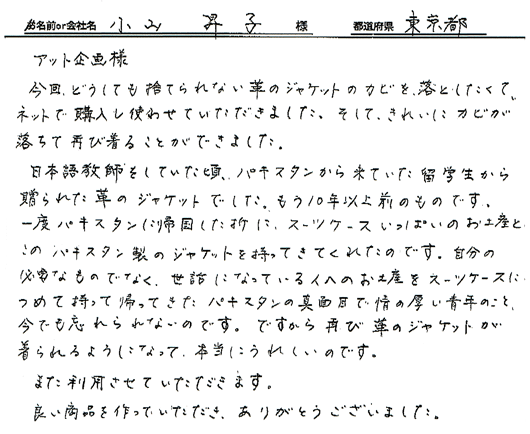 お名前or会社名 小み 昇子 様 都道府県 東京都
アット企画様
今回、どうしても捨てられない革のジャケットのカビを、落としたくて、
ネットで購入し使わせていただきました。そして、きれいにカビが
落ちて再び着ることができました。
日本語教師をしていた頃、パキスタンから来ていた留学生から
贈られた革のジャケットでした。もう10年以上前のものです。
一度パキスタンに帰国した折に、スーツケースいっぱいのお土産と、
このパキスタン製のジャケットを持ってきてくれたのです。自分の
必要なものでなく、世話になっている人へのお土産をスーツケースに
つめて持って帰ってきたパキスタンの真面目で情の厚い青年のこと、
今でも忘れられないのです。ですから再び革のジャケットが
着られるようになって、本当にうれしいのです。
また利用させていただきます。
良い商品を作っていただき、ありがとうございました。